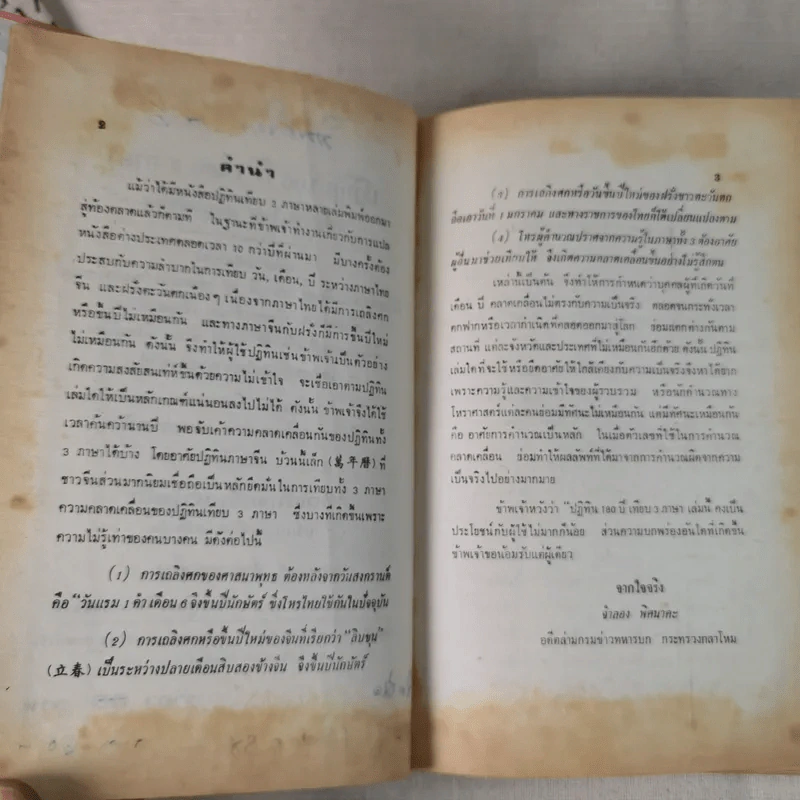 2
คำนำ
แม้ว่าได้มีหนังสือปฏิทินเทียบ 3 ภาษาหลายเล่มพิมพ์ออกมา
สู่ท้องตลาดแล้วก็ตามที ในฐานะที่ข้าพเจ้าทำงานเกี่ยวกับการแปล
หนังสือต่างประเทศตลอดเวลา 10 กว่าปีที่ผ่านมา มีบางครั้งต้อง
ประสบกับความลำบากในการเทียบ วัน, เดือน, ปี ระหว่างภาษาไทย
จีน และฝรั่งตะวันตกเนืองๆ เนื่องจากภาษาไทยได้มีการเถลิงศก
หรือขึ้นปีไม่เหมือนกัน และทางภาษาจีนกับฝรั่งก็มีการขึ้นปีใหม่
ไม่เหมือนกัน ดังนั้น จึงทำให้ผู้ใช้ปฏิทินเช่นข้าพเจ้าเป็นตัวอย่าง
เกิดความสงสัยสนเท่ห์ขึ้นด้วยความไม่เข้าใจ จะเชื่อเอาตามปฏิทิน
เล่มใดให้เป็นหลักเกณฑ์แน่นอนลงไปไม่ได้ ดังนั้น ข้าพเจ้าจึงได้ใช้
เวลาค้นคว้านานปี พอจับเค้าความคลาดเคลื่อนกันของปฏิทินทั้ง
3 ภาษาได้บ้าง โดยอาศัยปฏิทินภาษาจีน บ้วนนี้เล็ก (萬年曆) ที่
ชาวจีนส่วนมากนิยมเชื่อถือเป็นหลักยึดมั่นในการเทียบทั้ง 3 ภาษา
ความคลาดเคลื่อนของปฏิทินเทียบ 3 ภาษา ซึ่งบางทีเกิดขึ้นเพราะ
ความไม่รู้เท่าของคนบางคน มีดังต่อไปนี้
(1) การเถลิงศกของศาสนาพุทธ ต้องหลังจากวันสงกรานต์
คือ "วันแรม 1 ค่ำ เดือน 6 จึงขึ้นปีนักษัตร์ ซึ่งโหรไทยใช้กันในปัจจุบัน
(2) การเถลิงศกหรือขึ้นปีใหม่ของจีนที่เรียกว่า "ลิบชุน"
(立春) เป็นระหว่างปลายเดือนสิบสองข้างจีน จึงขึ้นปีนักษัตร์
3
(3) การเถลิงศกหรือวันขึ้นปีใหม่ของฝรั่งชาวตะวันตก
ถือเอาวันที่ 1 มกราคม และทางราชการของไทยก็ได้เปลี่ยนแปลงตาม
(4) โหรผู้คำนวณปราศจากความรู้ในภาษาทั้ง 3 ต้องอาศัย
ผู้อื่นมาช่วยเทียบให้ จึงเกิดความคลาดเคลื่อนขึ้นอย่างไม่รู้สึกตน
เหล่านี้เป็นต้น จึงทำให้การกำหนดว่าบุคคลผู้ที่เกิดวันที่
เดือน ปี คลาดเคลื่อนไม่ตรงกับความเป็นจริง ตลอดจนกระทั่งเวลา
ตกฟากหรือเวลากำเนิดที่คลอดออกมาสู่โลก ย่อมแตกต่างกันตาม
สถานที่ แต่ละจังหวัดและประเทศที่ไม่เหมือนกันอีกด้วย ดังนั้น ปฏิทิน
เล่มใดที่จะใช้ หรือยึดอาศัยให้ใกล้เคียงกับความเป็นจริงจึงหาได้ยาก
เพราะความรู้และความเข้าใจของผู้รวบรวม หรือนักคำนวณทาง
โหราศาสตร์แต่ละคนย่อมมีทัศนะไม่เหมือนกัน แต่มีทัศนะเหมือนกัน
คือ อาศัยการคำนวณเป็นหลัก ในเมื่อตัวเลขที่ใช้ในการคำนวณ
คลาดเคลื่อน ย่อมทำให้ผลลัพท์ที่ได้มาจากการคำนวณผิดจากความ
เป็นจริงไปอย่างมากมาย
ข้าพเจ้าหวังว่า "ปฏิทิน 180 ปี เทียบ 3 ภาษา เล่มนี้ คงเป็น
ประโยชน์กับผู้ใช้ไม่มากก็น้อย ส่วนความบกพร่องอันใดที่เกิดขึ้น
ข้าพเจ้าขอน้อมรับแต่ผู้เดียว
จากใจจริง
จำลอง พิศนาคะ
อดีตล่ามกรมข่าวทหารบก กระทรวงกลาโหม